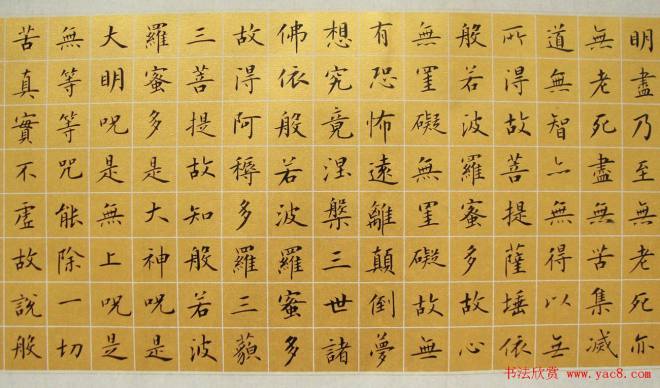 明盡乃至無老死亦
無老死盡無苦集滅
道無智亦無得以无
所得故菩提薩埵依
般若波羅蜜多故心
無罣礙無罣礙故無
有恐怖遠離顛倒夢
想究竟涅槃三世諸
佛依般若波羅蜜多
故得阿耨多羅三藐
三菩提故知般若波
羅蜜多是大神呪是
大明呪是無上呪是
無等等咒能除一切
苦真實不虛故說般
书法欣赏 www.yac8.com